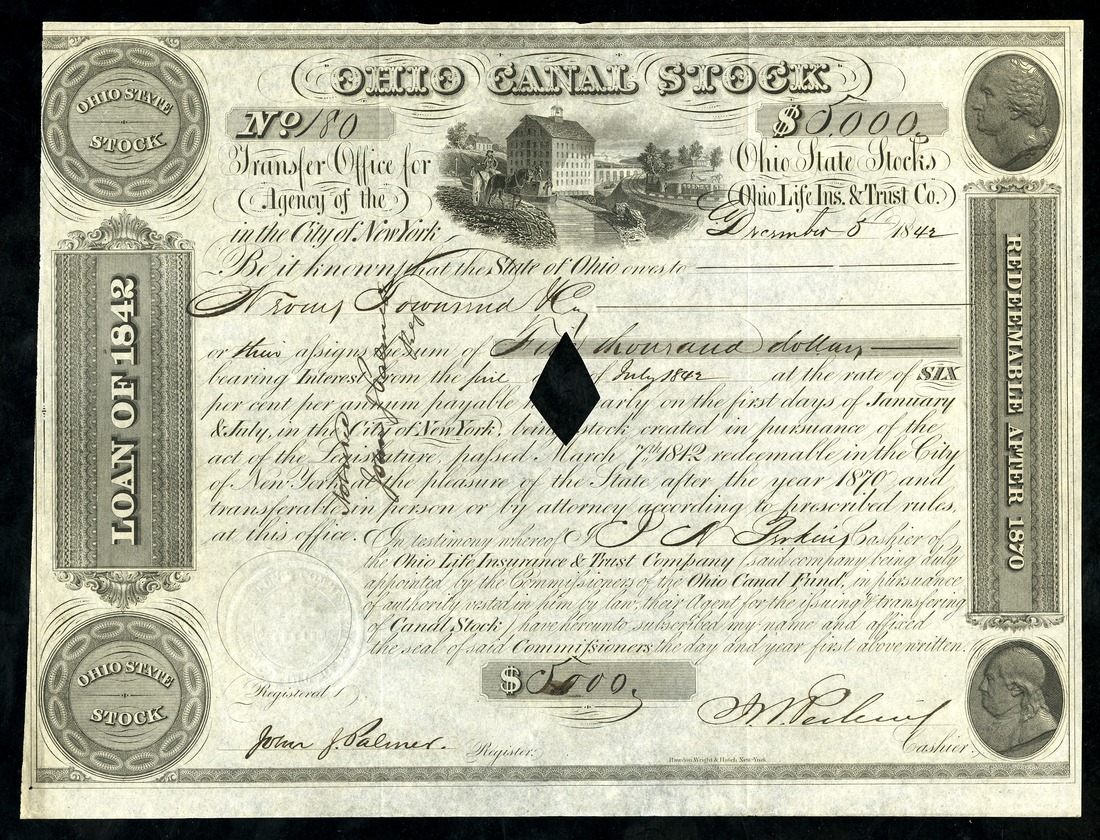 OHIO CANAL STOCK
OHIO STATE STOCK
No 180
$ 5,000.
Transfer Office for
Ohio State Stocks
Agency of the
Ohio Life Ins. & Trust Co.
in the City of New York
December 5 1842
Be it known that the State of Ohio owes to
Townsend & Co
or their assigns the sum of Five thousand dollars
bearing Interest from the first of July 1842 at the rate of SIX
per cent per annum payable early on the first days of January
& July, in the City of New York, being stock created in pursuance of the
act of the Legislature, passed March 7th 1842 redeemable in the City
of New York at the pleasure of the State after the year 1870 and
transferable in person or by attorney according to prescribed rules,
at this office. In testimony whereof I, J N Perkins Cashier of
the Ohio Life Insurance & Trust Company (said company being duly
appointed by the Commissioners of the Ohio Canal Fund, in pursuance
of authority vested in him by law, their Agent for the issuing & transfering
of Canal Stock) have hereunto subscribed my name and affixed
the seal of said Commissioners the day and year first above written.
LOAN OF 1842
REDEEMABLE AFTER 1870
OHIO STATE STOCK
$ 5,000.
Registered
John J. Palmer.
Register.
Perkins
Cashier
Rawdon, Wright & Hatch, New-York.